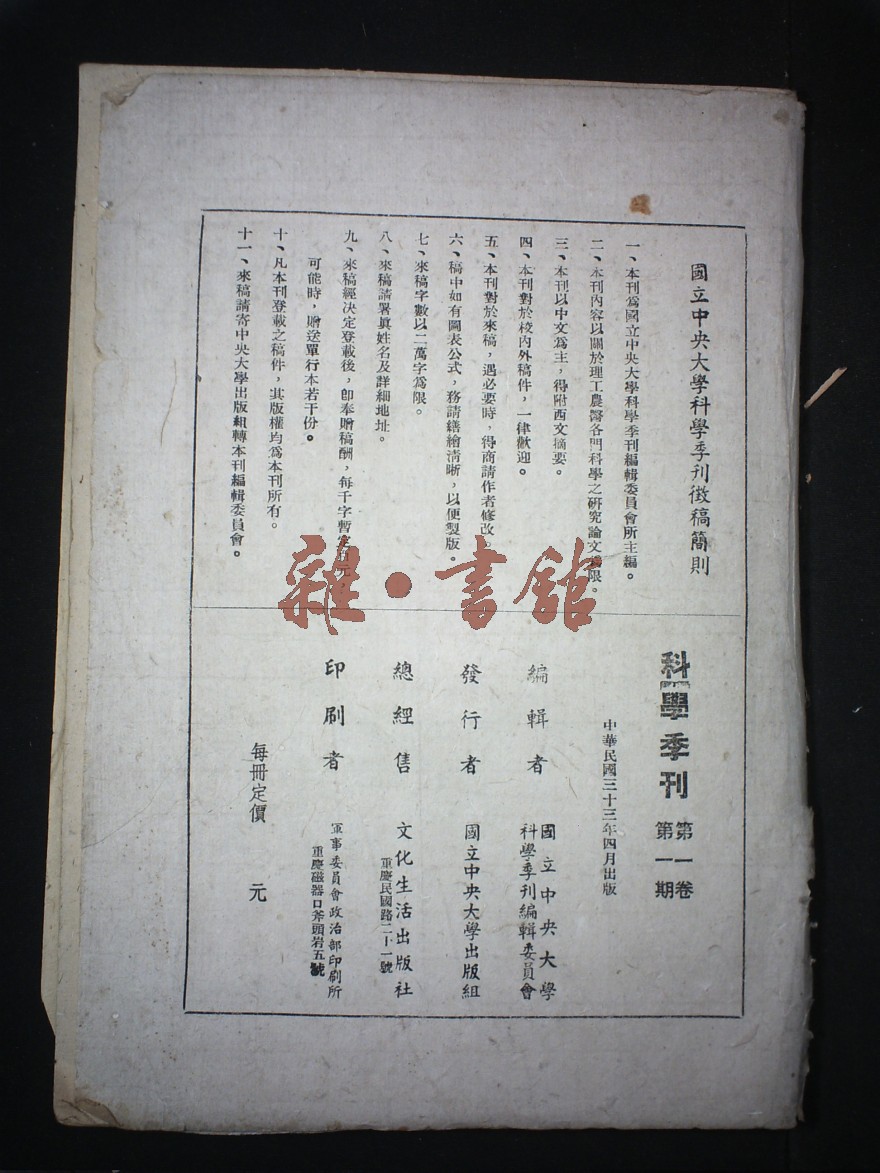 國立中央大學科學季刊徵稿簡則
一、本刊爲國立中央大學科學季刊編輯委員會所主編。
二、本刊內容以關於理工農醫各門科學之研究論文爲限。
三、本刊以中文爲主，得附西文摘要。
四、本刊對於校內外稿件，一律歡迎。
五、本刊對於來稿，遇必要時，得商請作者修改。
六、稿中如有圖表公式，務請繕繪清晰，以便製版。
七、來稿字數以二萬字爲限。
八、來稿請署眞姓名及詳細地址。
九、來稿經決定登載後，卽奉贈稿酬，每千字暫元
可能時，贈送單行本若干份。
十、凡本刊登載之稿件，其版權均爲本刊所有。
十一、來稿請寄中央大學出版組轉本刊編輯委員會。
雜·書館
科學季刊
第一卷
第一期
中華民國三十三年四月出版
編輯者
國立中央大學
科學季刊編輯委員會
發行者
國立中央大學出版組
總經售
文化生活出版社
重慶民國路二十一號
印刷者
軍事委員會政治部印刷所
重慶磁器口斧頭岩五號
每冊定價 元